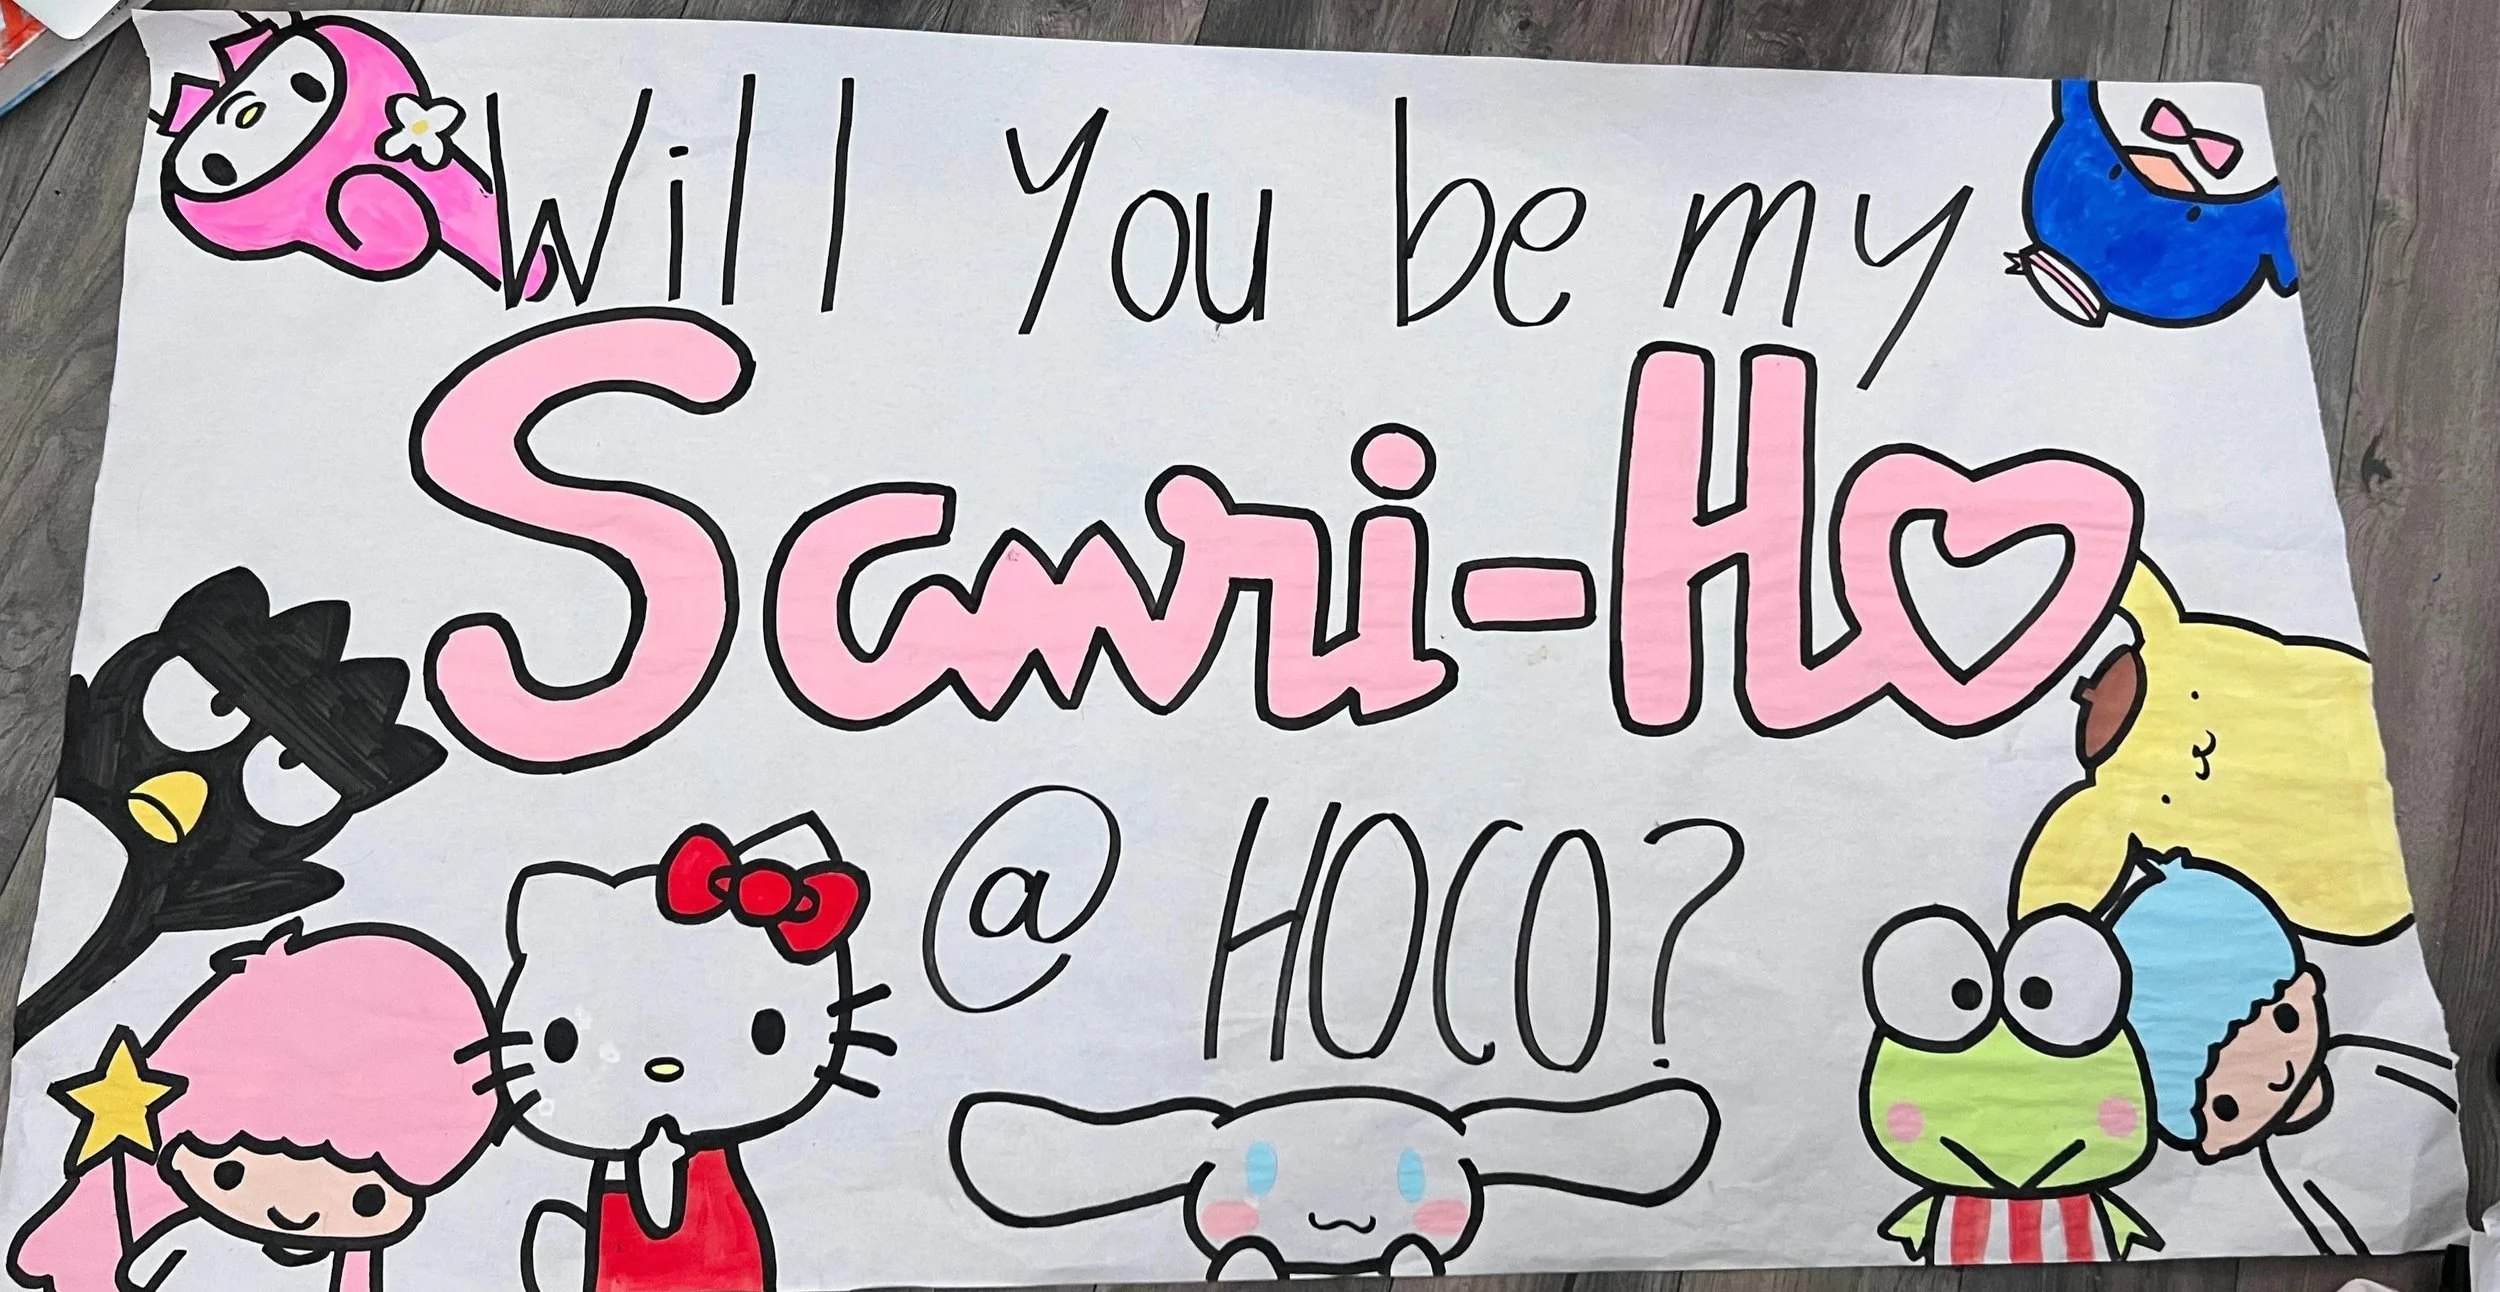 Will You be my
Sanri-Ho
@ HOCO?